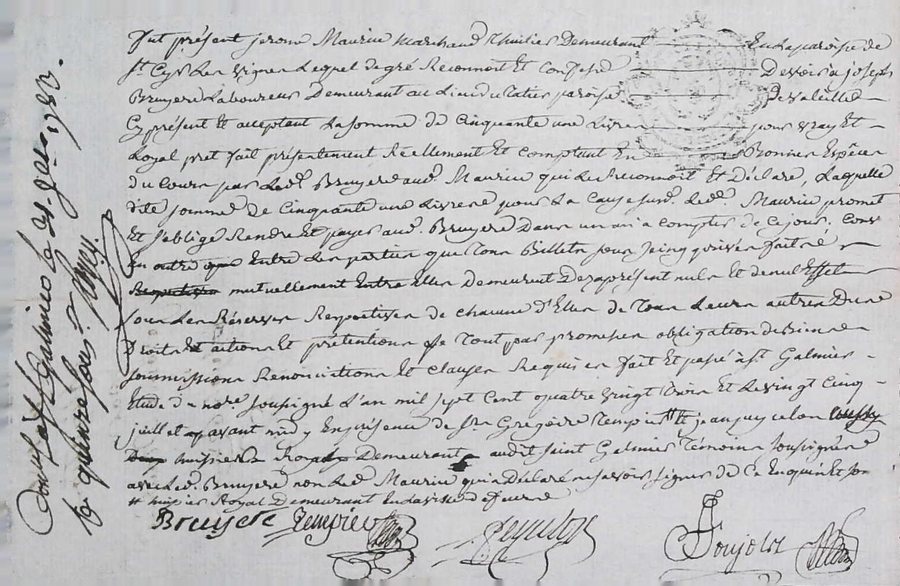 fut présent jerome Maurice marchand Thuilier Demeurant En La paroisse de
st. Cyr Les vignes Lequel de gré Reconnoit Et Confesse Devoir a joseph
Bruyere Laboureur Demeurant au Lieu du paroisse De valeille
Cy présent Et acceptant La somme de Cinquante une Livres pour vray Et
Loyal pret fait présentement Réellement Et comptant En Bonnes Espéces
du Cours par Led. Bruyere aud. Maurice qui Le Reconnoit Et Déclare, Laquelle
dite somme de Cinquante une Livres pour La Cause susd. Led. Maurice promet
Et s'oblige Rendre Et payer aud. Bruyere Dans un an a compter de Ce jour, Conv
En outre Entre Les parties que tous Billets sous seing privés faits
mutuellement Entre Elles Demeurent Des a présent nuls Et de nul Effet
sous Les Réserves Respectives de chacune d'Elles de Tous Leurs autres Dus
Droits Et actions Et prétentions Tout par promesses obligation de Biens
soumissions Renonciations Et clauses Requises fait Et passé a st Galmier
Etude du no.re soussigné L'an mil sept cent quatre vingt trois Et Le vingt cinq
juillet avant midy En présence de sr. Grégoire Tempier Et jean puy
huissiers Royal Demeurant audit saint Galmier Témoins soussignés
avec Led. Bruyere non Led. Maurice qui a Déclaré ne savoir signer de Ce Enquis Et
huissier Royal Demeurant
Bruyere Tempier
Poujolot
Controllé a st Galmier le 1783.
Rs quinze sous.